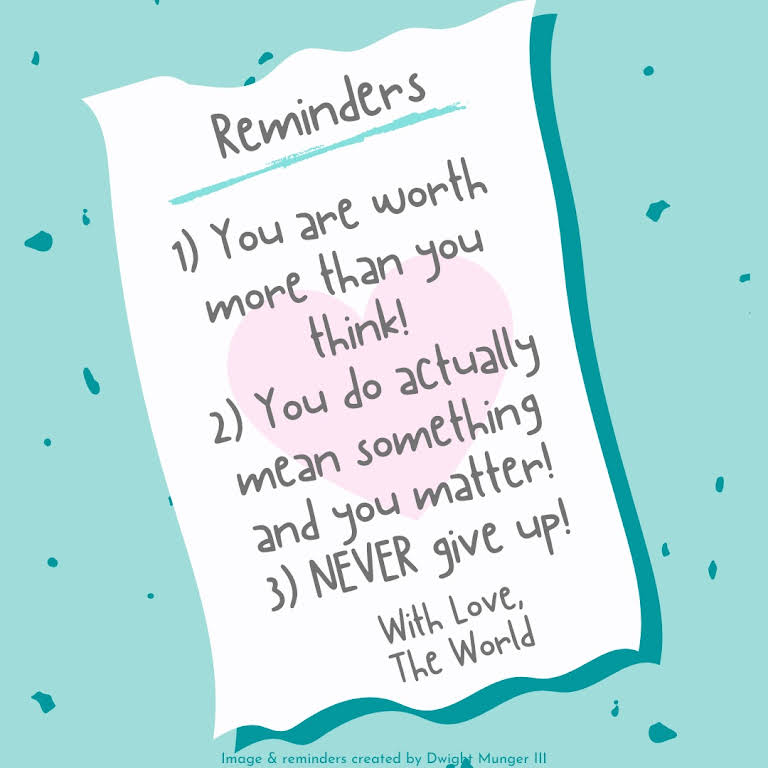 Reminders
1) You are worth
more than you
think!
2) You do actually
mean something
and you matter!
3) NEVER give up!
With Love,
The World
Image & reminders created by Dwight Munger III